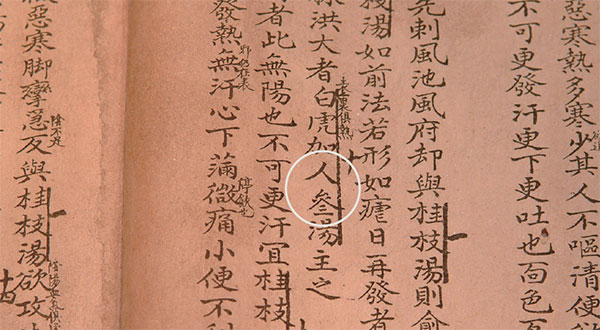 惡寒熱多寒少其人不嘔清便
不可更發汗更下更吐也面色
先刺風池風府却與桂枝湯則愈
枝湯如前法若形如瘧日再發者
洪大者白虎加人叄湯主之
表裏俱熱
者此無陽也不可更汗宜桂枝
發熱無汗心下滿微痛小便不利
邪仍在表
惡寒脚攣急反與桂枝湯欲攻
陰不足
十四